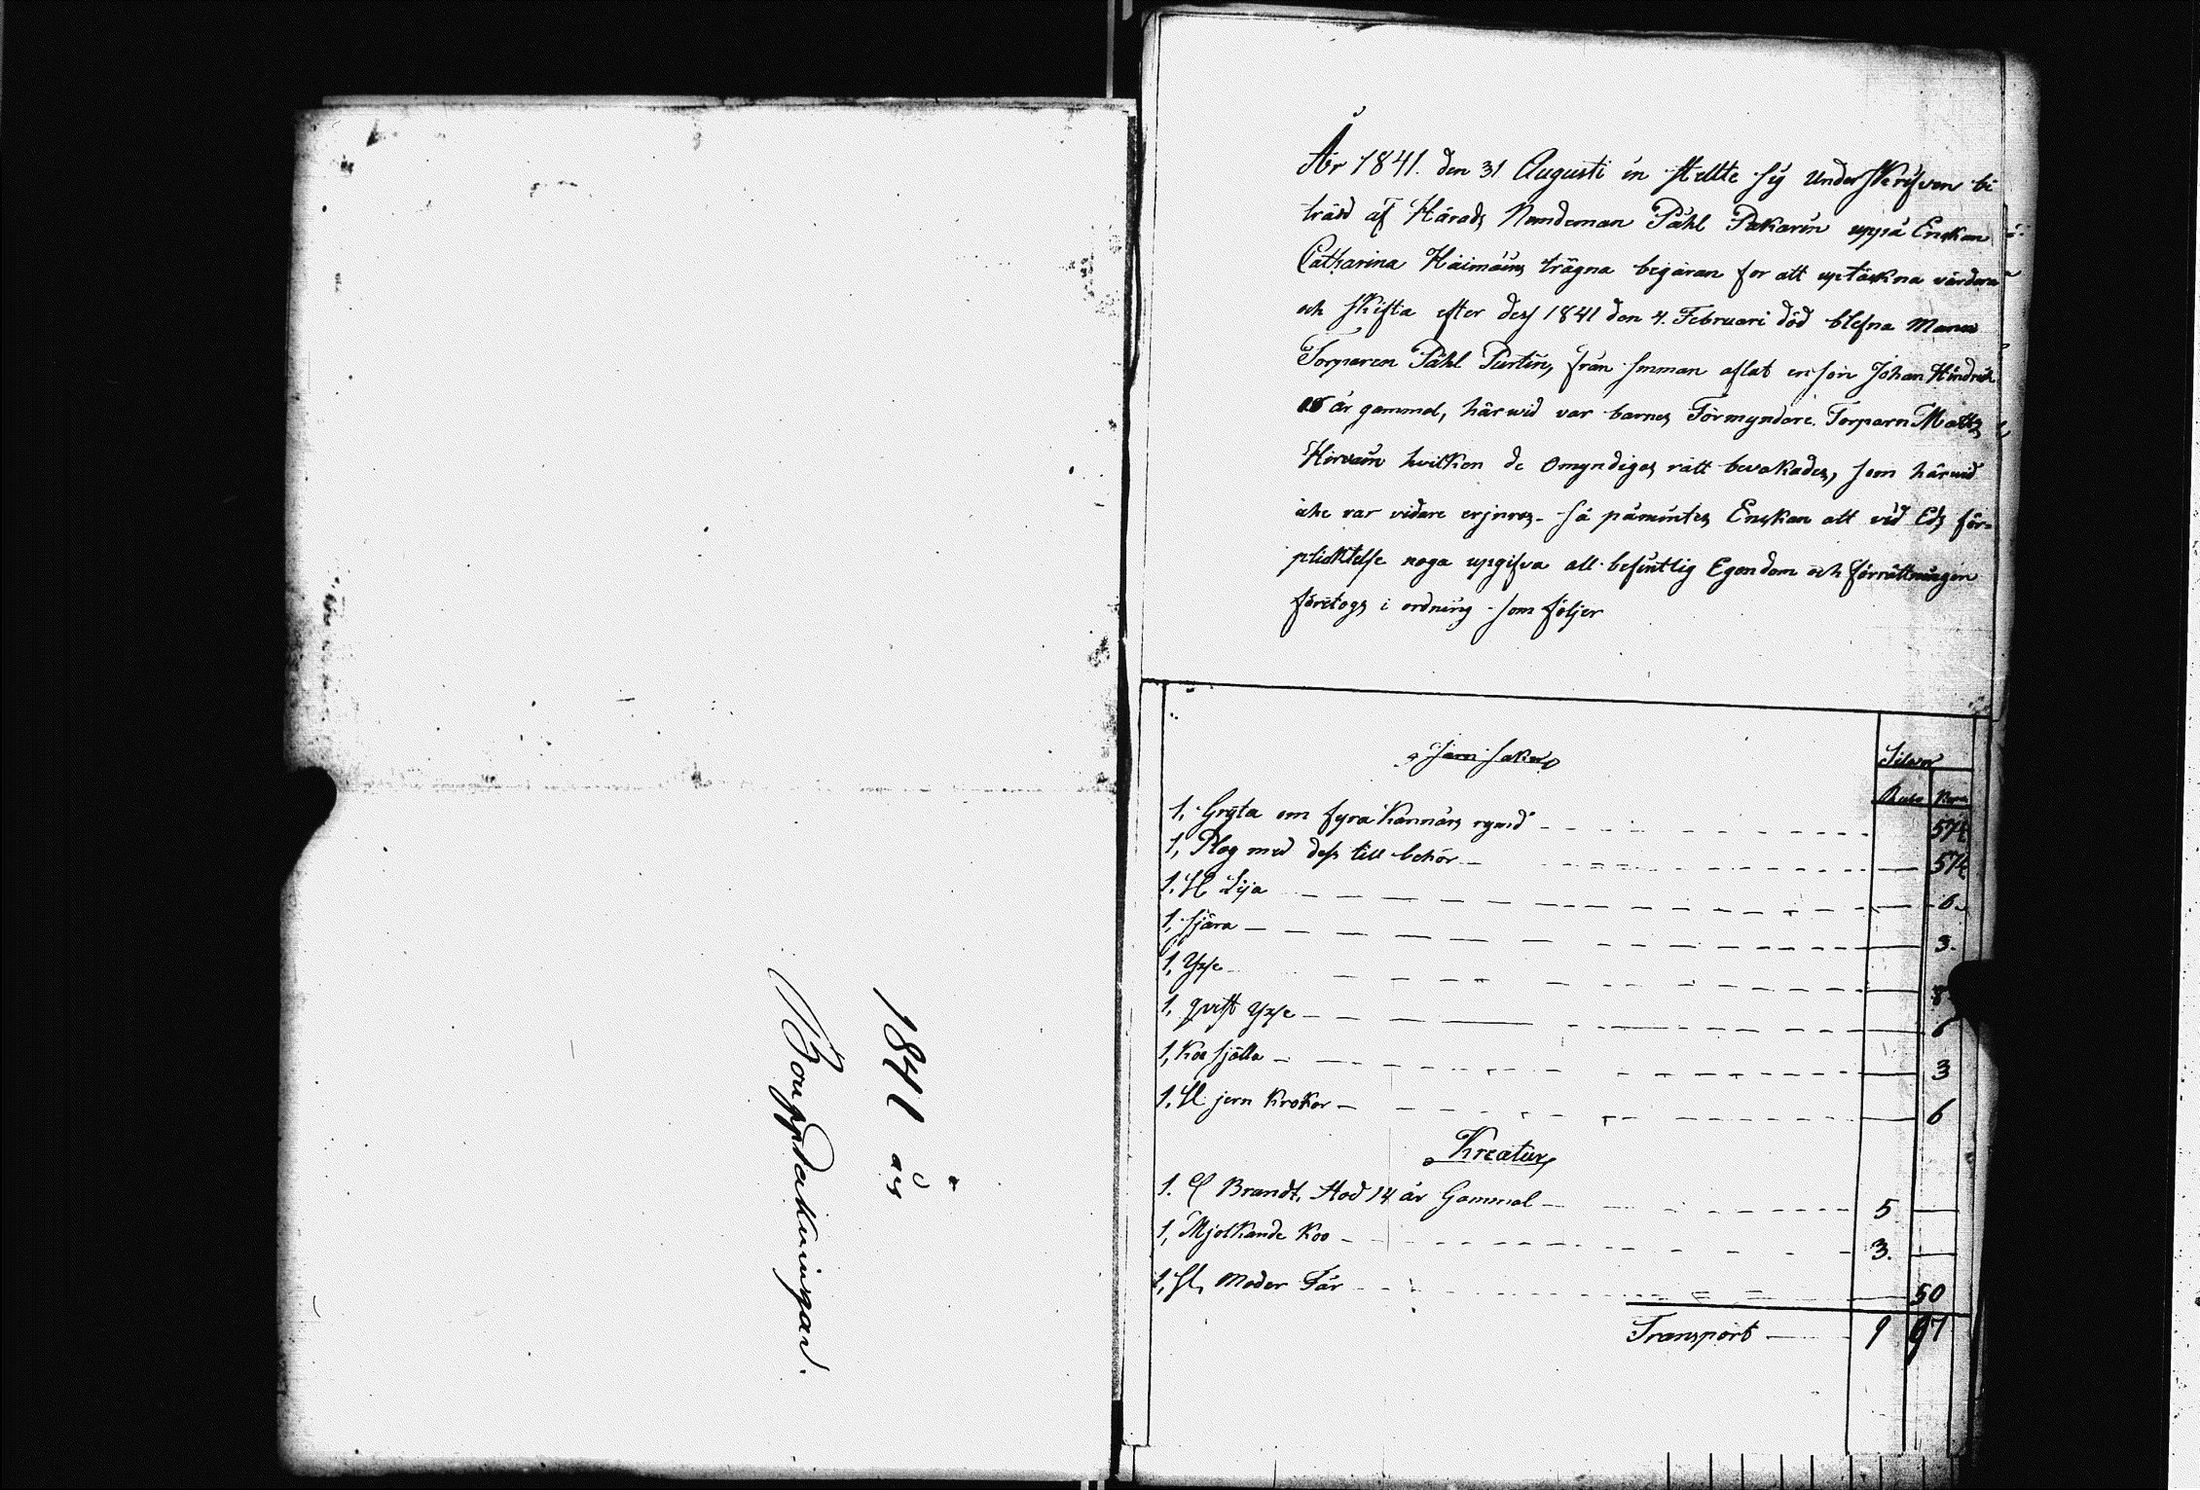 1841 års
Bouppdakningar.
År 1841. den 31 Augusti in stellte sig underskrifven bi
trädd af Härads Nämdeman Påhl Pakarin uppå Enkan
Catharina Häimäins trägna begäran for att uptäckna värdera
och skifta efter dess 1841 den 4. Februari död blefna Manen
Torparen Påhl Purtin, från hvilken aflat en son Johan Hindrich
år gammal, härwid var barnes Förmyndare Torparn Matts
Hirvoin hvilken de Omyndiges rätt bevakades, som härwid
icke var vidare erinres. så påmintes Enskan att vid Eds för-
plicktelse noga upgifva all befintlig Egendom och förrättningen
företogs i ordning som följer
Järn saker
Silver
Rubl Kop
1, Gryta om fyra Kannors rymd 57 1/4
1, Plog med dess till behör 57 1/4
1. St Lija 6.
1, skjära 3.
1, Yxse 8
1, qvist Yxse 6
1, Koe skjälla 3
1. St jern Krokor 6
Kreatur
1. Brandt. Stod 14 år Gammal 5
1, Mjolkande Koo 3.
1, St, Moder Får 50
Transport 9 97